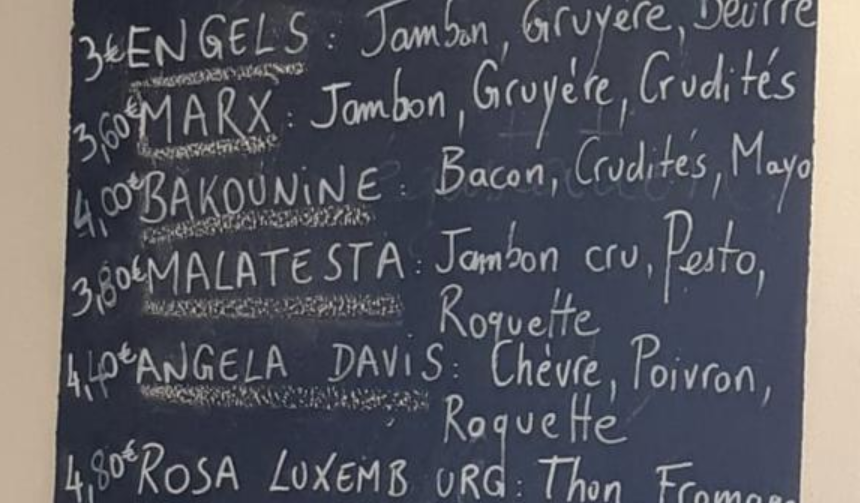 3€ ENGELS : Jambon, Gruyère, Beurre
3,60€ MARX : Jambon, Gruyére, Crudités
4,00€ BAKOUNINE : Bacon, Crudités, Mayo
3,80€ MALATESTA : Jambon cru, Pesto,
Roquette
4,40€ ANGELA DAVIS : Chèvre, Poivron,
Roquette
4,80€ ROSA LUXEMBURG : Thon Fromage